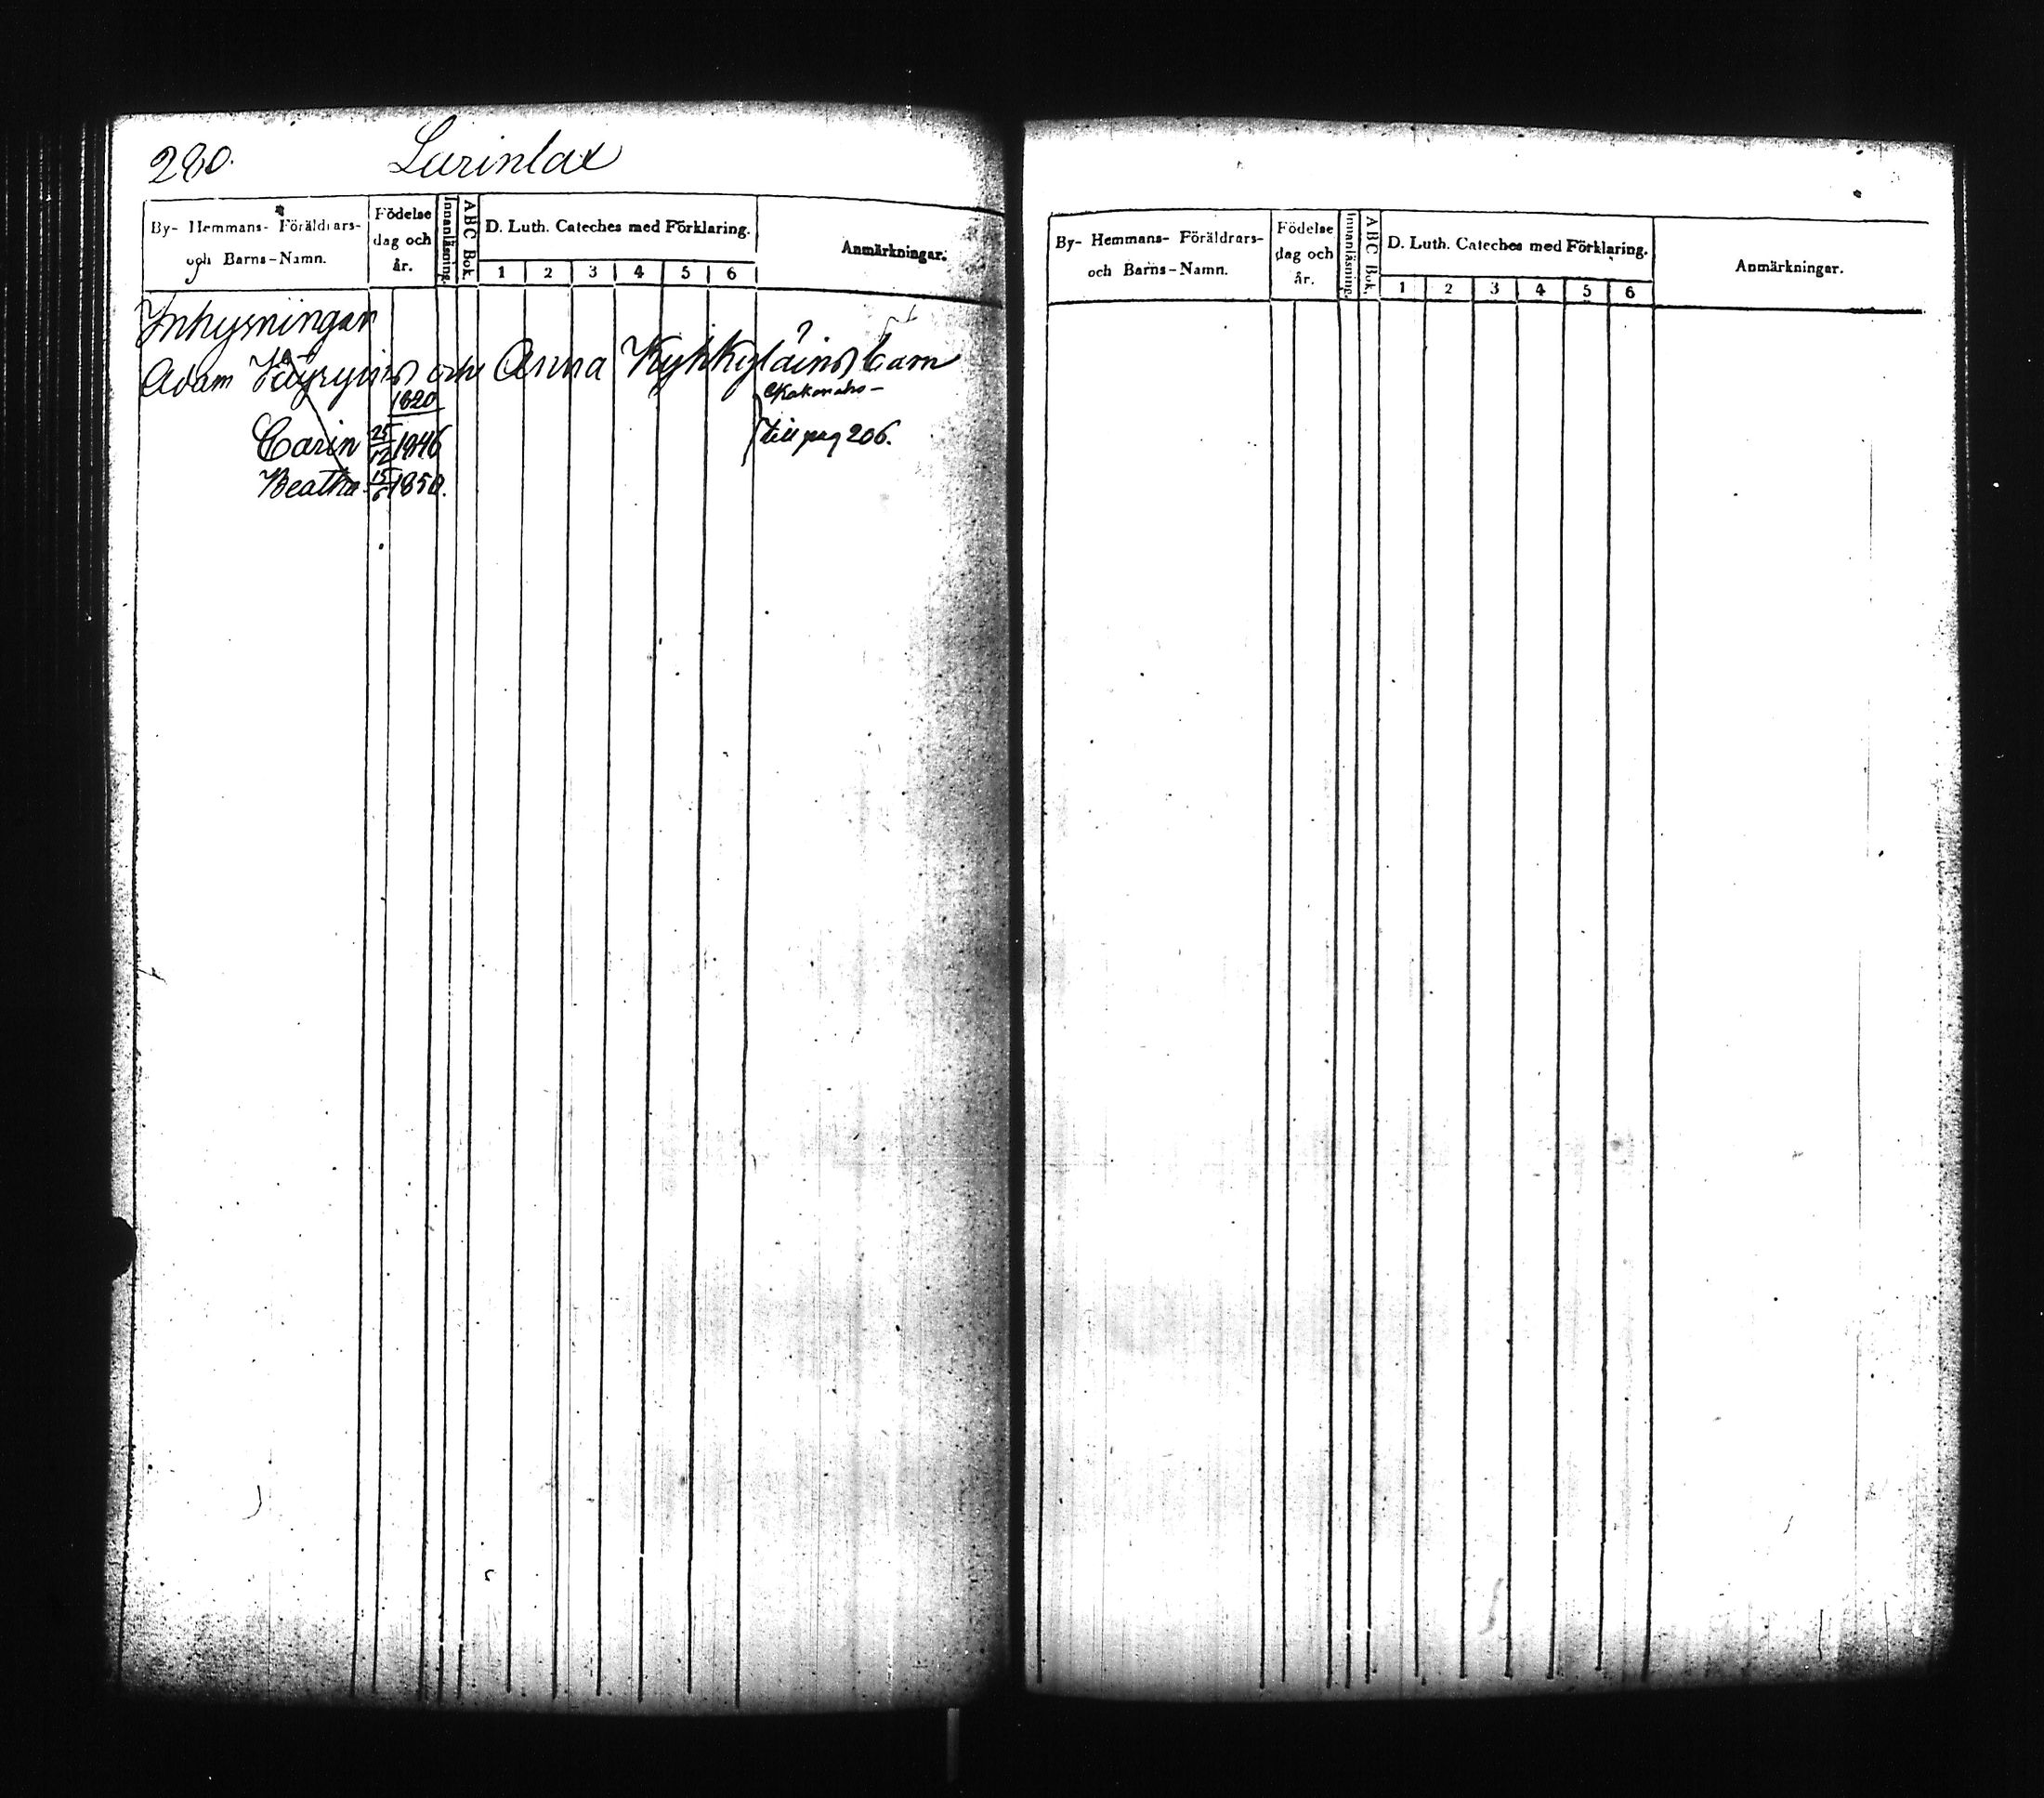 280. Lurinlax
By- Hemmans- Föräldrars- och Barns-Namn. Födelse dag och år. Innanläsning. ABC Bok. D. Luth. Cateches med Förklaring. Anmärkningar.
1 2 3 4 5 6
Inhysningar
Adam Väyrynes och Anna Kyhkyläins barn
1820
Carin 25/12 1846 till pag 206.
Beatha 15/6 1850.
By- Hemmans- Föräldrars- och Barns-Namn. Födelse dag och år. Innanläsning. ABC Bok. D. Luth. Cateches med Förklaring. Anmärkningar.
1 2 3 4 5 6